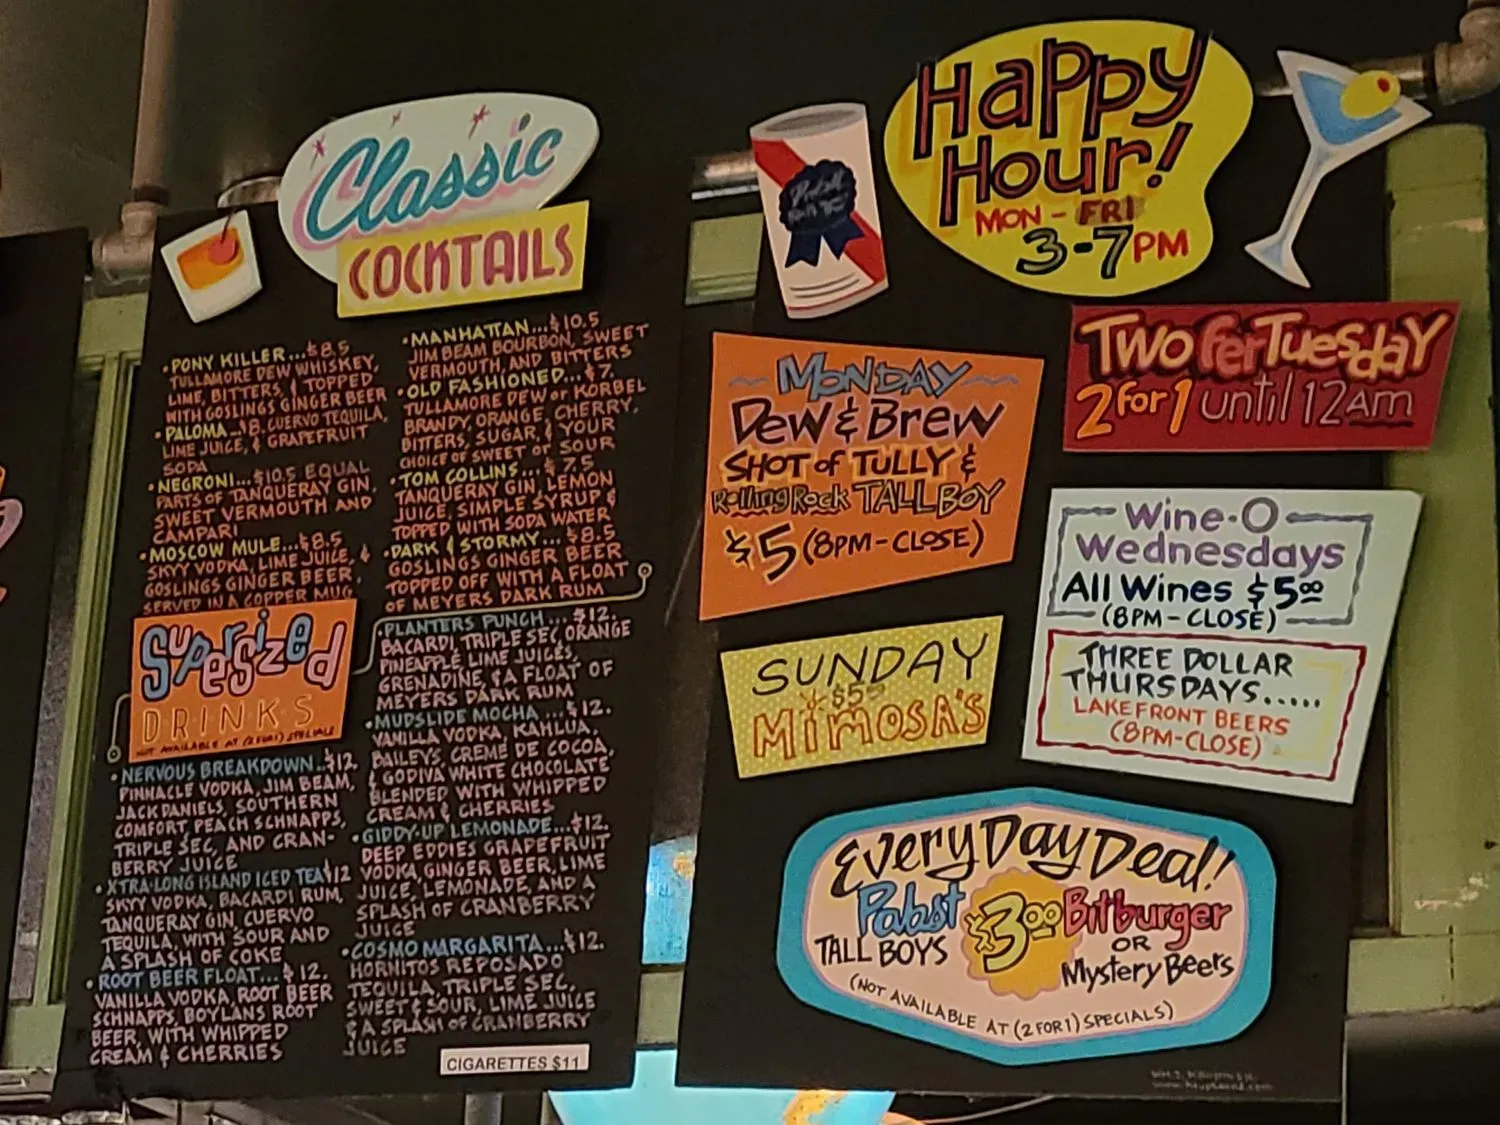 Classic
COCKTAILS
• PONY KILLER...$8.5
TULLAMORE DEW WHISKEY,
LIME, BITTERS, & TOPPED
WITH GOSLINGS GINGER BEER
• PALOMA...$8. CUERVO TEQUILA,
LIME JUICE, & GRAPEFRUIT
SODA
• NEGRONI...$10.5 EQUAL
PARTS OF TANQUERAY GIN,
SWEET VERMOUTH AND
CAMPARI
• MOSCOW MULE...$8.5
SKYY VODKA, LIME JUICE, &
GOSLINGS GINGER BEER,
SERVED IN A COPPER MUG
• MANHATTAN...$10.5
JIM BEAM BOURBON, SWEET
VERMOUTH, AND BITTERS
• OLD FASHIONED...$7.
TULLAMORE DEW or KORBEL
BRANDY, ORANGE, CHERRY,
BITTERS, SUGAR, & YOUR
CHOICE OF SWEET OF SOUR
• TOM COLLINS...$7.5
TANQUERAY GIN, LEMON
JUICE, SIMPLE SYRUP &
TOPPED WITH SODA WATER
• DARK & STORMY...$8.5
GOSLINGS GINGER BEER
TOPPED OFF WITH A FLOAT
OF MEYERS DARK RUM
SUPERSIZED
DRINKS
NOT AVAILABLE AT (2 FOR 1) SPECIALS
• NERVOUS BREAKDOWN...$12.
PINNACLE VODKA, JIM BEAM,
JACK DANIELS, SOUTHERN
COMFORT, PEACH SCHNAPPS,
TRIPLE SEC, AND CRAN-
BERRY JUICE
• XTRA-LONG ISLAND ICED TEA $12
SKYY VODKA, BACARDI RUM,
TANQUERAY GIN, CUERVO
TEQUILA, WITH SOUR AND
A SPLASH OF COKE
• ROOT BEER FLOAT...$12.
VANILLA VODKA, ROOT BEER
SCHNAPPS, BOYLANS ROOT
BEER, WITH WHIPPED
CREAM & CHERRIES
• PLANTERS PUNCH...$12.
BACARDI, TRIPLE SEC, ORANGE
PINEAPPLE, LIME JUICES,
GRENADINE, & A FLOAT OF
MEYERS DARK RUM
• MUDSLIDE MOCHA...$12.
VANILLA VODKA, KAHLUA,
BAILEYS, CREME DE COCOA,
& GODIVA WHITE CHOCOLATE
BLENDED WITH WHIPPED
CREAM & CHERRIES
• GIDDY-UP LEMONADE...$12.
DEEP EDDIES GRAPEFRUIT
VODKA, GINGER BEER, LIME
JUICE, LEMONADE, AND A
SPLASH OF CRANBERRY
JUICE
• COSMO MARGARITA...$12.
HORNITOS REPOSADO
TEQUILA, TRIPLE SEC,
SWEET & SOUR, LIME JUICE
& A SPLASH OF CRANBERRY
JUICE
CIGARETTES $11
Happy
Hour!
MON - FRI
3-7PM
MONDAY
DEW & BREW
SHOT of TULLY &
Rolling Rock TALL BOY
$5 (8PM-CLOSE)
Two fer Tuesday
2 for 1 until 12am
Wine-O
Wednesdays
All Wines $5⁰⁰
(8PM-CLOSE)
THREE DOLLAR
THURSDAYS.....
LAKEFRONT BEERS
(8PM-CLOSE)
SUNDAY
$5⁰⁰
MIMOSA'S
Every Day Deal!
Pabst
TALL BOYS
$3⁰⁰
Bitburger
OR
Mystery Beers
(NOT AVAILABLE AT (2 FOR 1) SPECIALS)